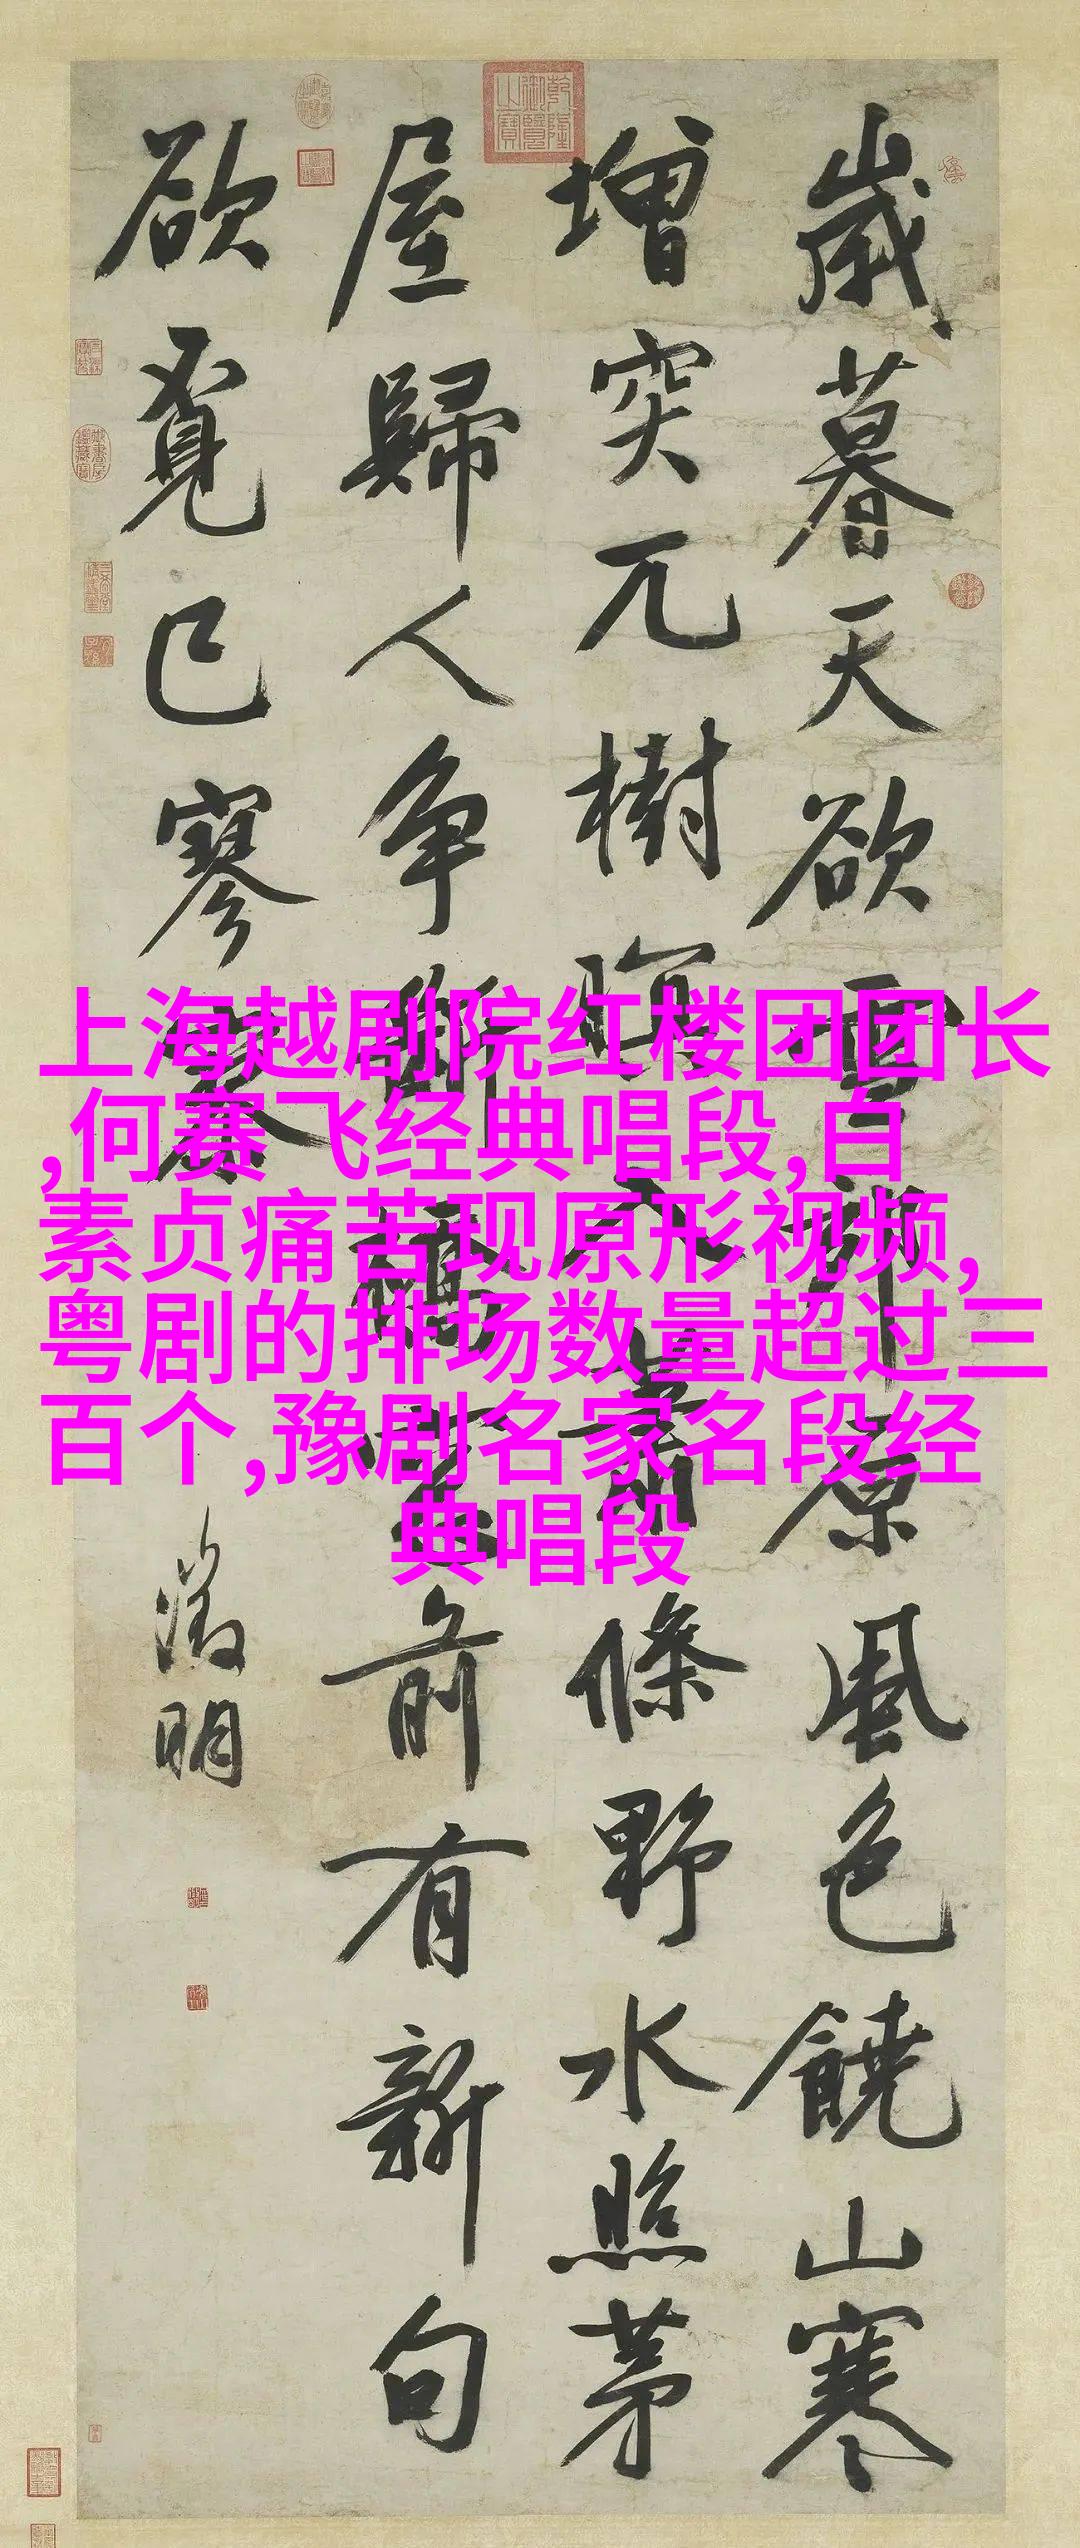 歲暮天欲雪郊原風色饒山寒
增突兀樹暝入蕭條野水照茅
屋歸人争斷橋前有新句
欲覓已寥寥
徵明
乾隆御覽之寶
上海越剧院红楼团团长
,何赛飞经典唱段,白
素贞痛苦现原形视频,
粤剧的排场数量超过三
百个,豫剧名家名段经
典唱段